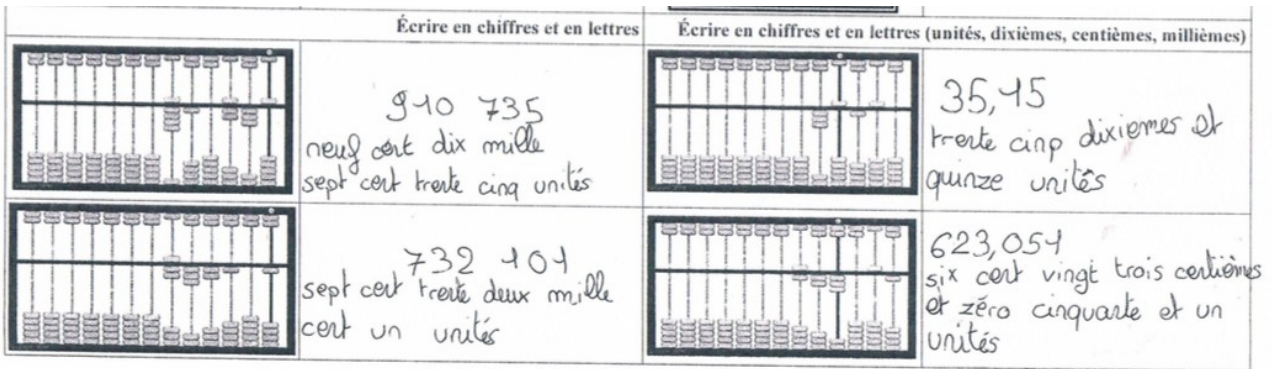 Écrire en chiffres et en lettres
Écrire en chiffres et en lettres (unités, dixièmes, centièmes, millièmes)
910 735
neuf cent dix mille
sept cent trente cinq unités
35,15
trente cinq dixiemes et
quinze unités
732 101
sept cent trente deux mille
cent un unités
623,051
six cent vingt trois centièmes
et zéro cinquante et un
unités